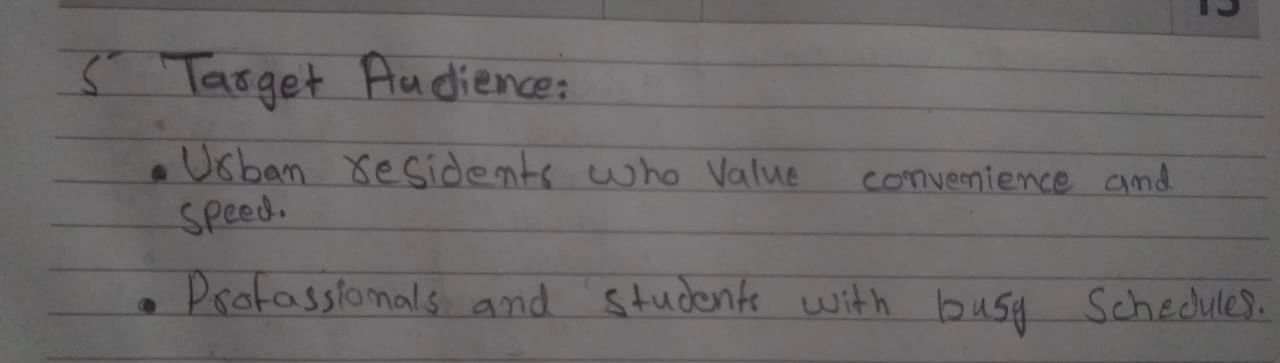 5 Target Audience:
• Urban residents who value convenience and
speed.
• Profassionals and students with busy Schedules.